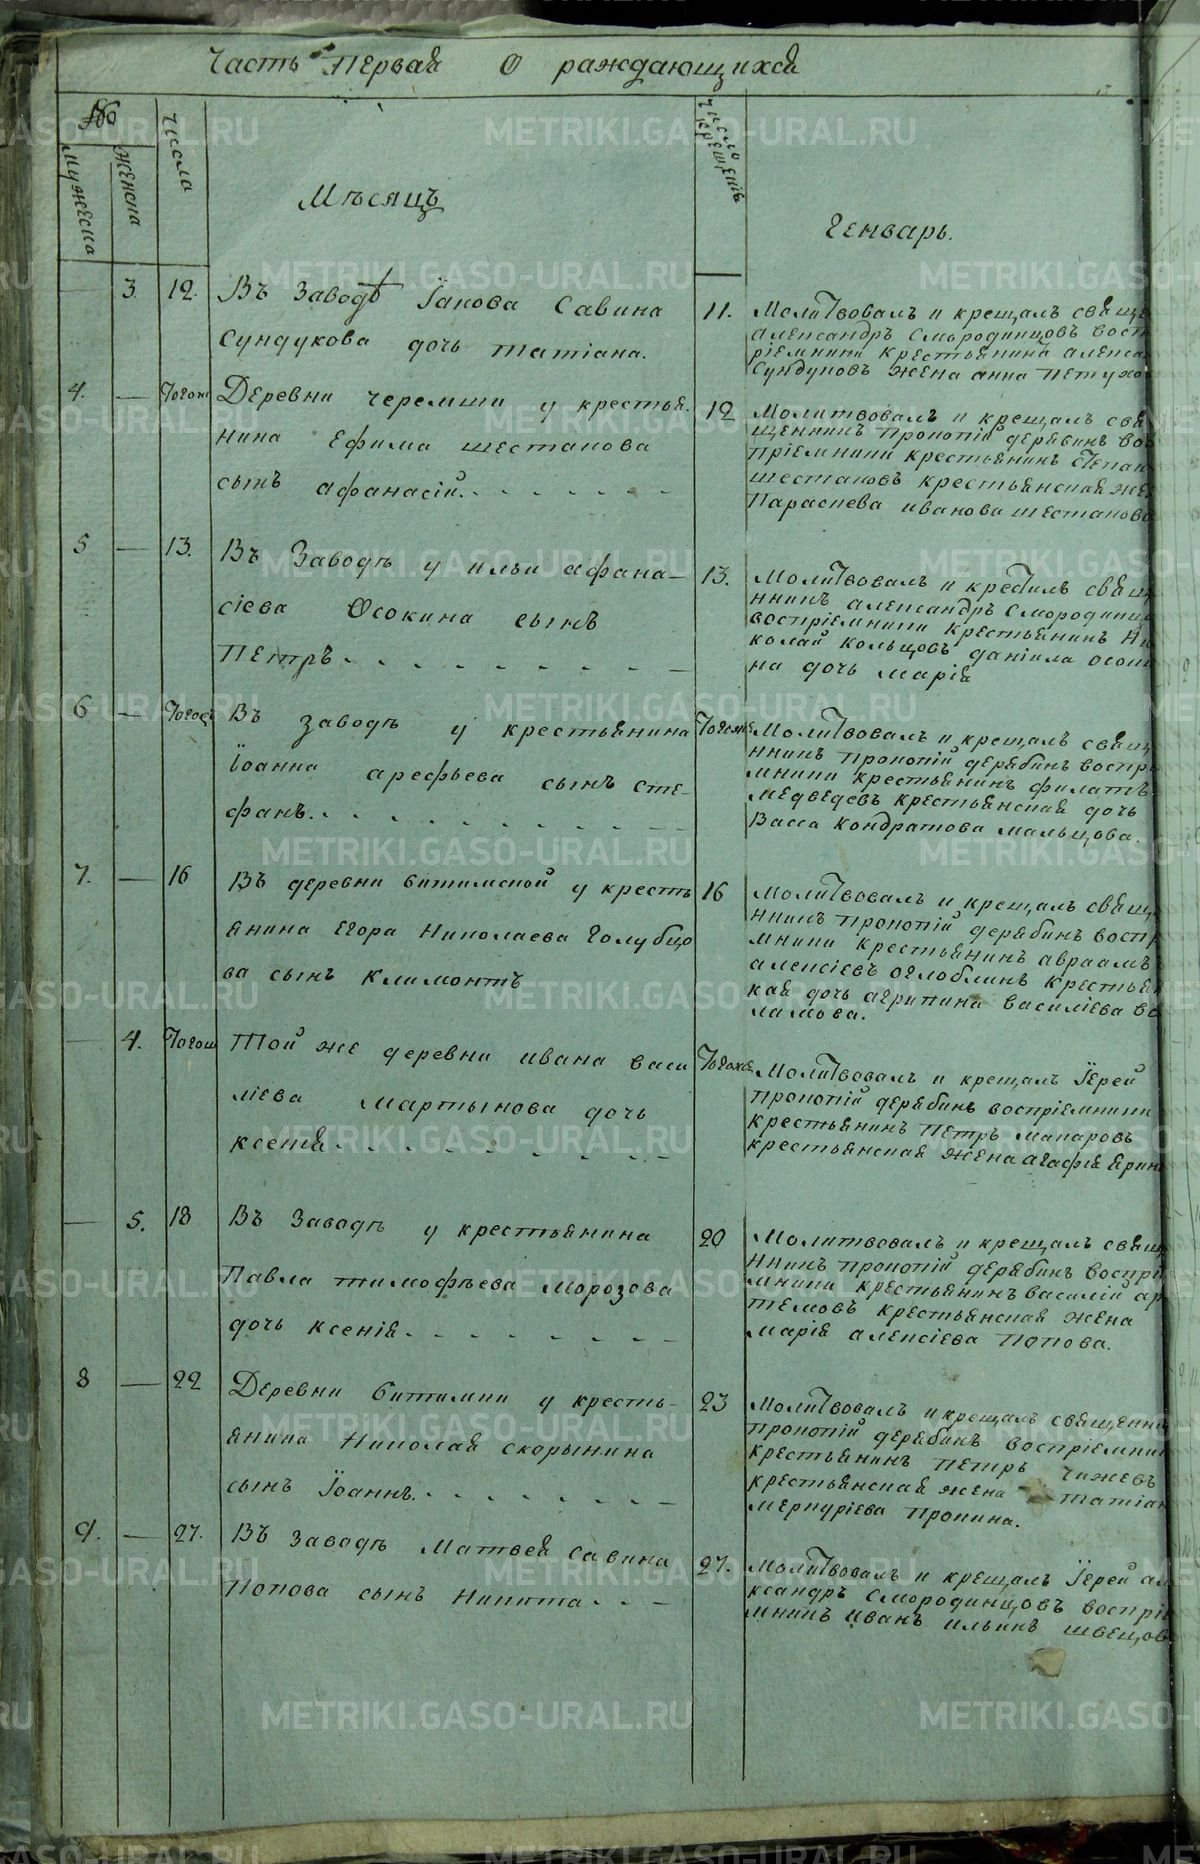 Часть первая О раждающихся
№
Мужеска
Женска
Числа
Мѣсяцъ
Число крещенія
Генварь.
3. 12. Въ Заводѣ Їакова Савина
Сундукова дочь татіана.
11. Молитвовалъ и крещалъ
александръ Смородинцовъ
ріемники крестьянинъ
Сундуковъ жена анна
4. — Тогож Деревни черемши у крестья
нина Ефима шестакова
сынъ афанасій.
12 Молитвовалъ и крещалъ
щенникъ прокопій дерябинъ
пріемники крестьянинъ Степан
шестаковъ крестьянская
Параскева иванова шестакова
5 — 13. Въ Заводѣ у ильи афана–
сіева Осокина сынъ
Петръ.
13. Молитвовалъ и крестилъ
нникъ александръ
воспріемники крестьянинъ Ни
колай кольцовъ даніила
на дочь марія
6 — Въ заводѣ у крестьянина
Їоанна арефьева сынъ сте–
фанъ.
Тогоже Молитвовалъ и крещалъ
нникъ прокопій дерябинъ
мники крестьянинъ филатъ
медведевъ крестьянская дочь
Васса кондратова мальцова.
7. — 16 Въ деревни битимской у кресть
янина Егора Николаева Голубцо
ва сынъ климонтъ
16 Молитвовалъ и крещалъ
нникъ прокопій дерябинъ
мники крестьянинъ авраамъ
алексіевъ оглоблинъ
кая дочь агрипина василіева
ламова.
4. Тогож Той же деревни ивана васи
ліева Мартынова дочь
ксенія
Тогоже Молитвовалъ и крещалъ Їерей
прокопій дерябинъ воспріемники
крестьянинъ Петръ макаровъ
крестьянская жена агафія
5. 18 Въ Заводѣ у крестьянина
Павла тимофѣева морозова
дочь ксенія.
20 Молитвовалъ и крещалъ
нникъ прокопій дерябинъ
мники крестьянинъ василій ар
темовъ крестьянская жена
марія алексіева Попова.
8 — 22 Деревни битимки у кресть–
янина Николая скорынина
сынъ Їоаннъ.
23 Молитвовалъ и крещалъ
прокопій дерябинъ
крестьянинъ петръ чижевъ
крестьянская жена
меркуріева пронина.
9. — 27. Въ заводѣ Матвея савина
Попова сынъ никита
27. Молитвовалъ и крещалъ Їерей
ксандръ Смородинцовъ
мникъ иванъ ильинъ швецовъ
METRIKI.GASO-URAL.RU